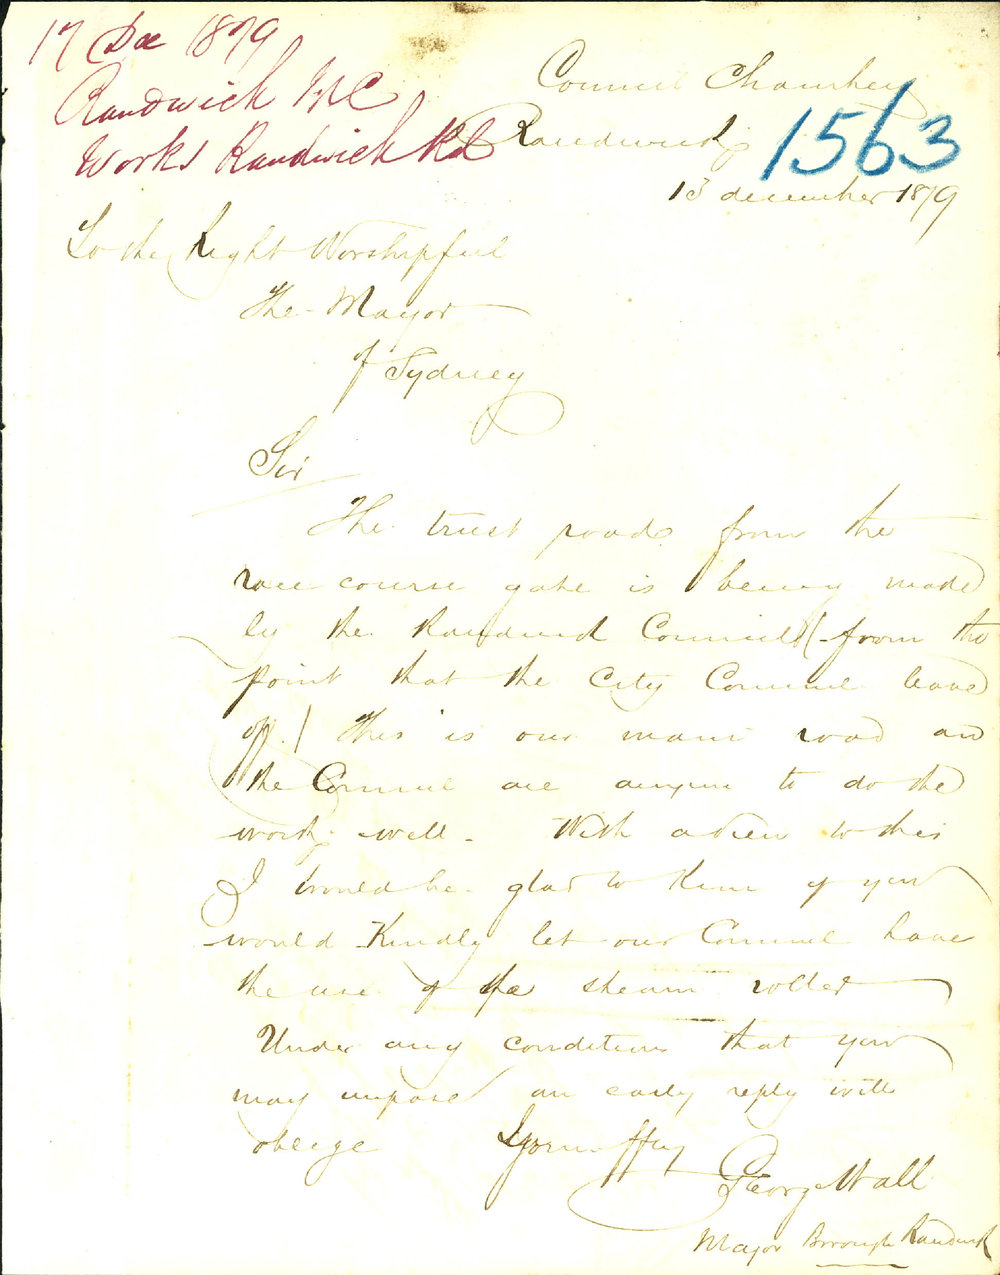 17 Dec 1879
Randwick M C
Works Randwick Rd
Council Chamber
Randwick
1563
13 december 1879
To the Right Worshipful
The Mayor
of Sydney
Sir
The trust road from the
race course gate is being made
by the Randwick Council (from the
point that the City Council leave
off.) This is our main road and
the Council are anxious to do the
work well. With a view to this
I would be glad to know if you
would Kindly let our Council have
the use of the steam roller
Under any conditions that you
may impose an early reply will
obleige Yours
George Wall
Mayor Borough Randwick